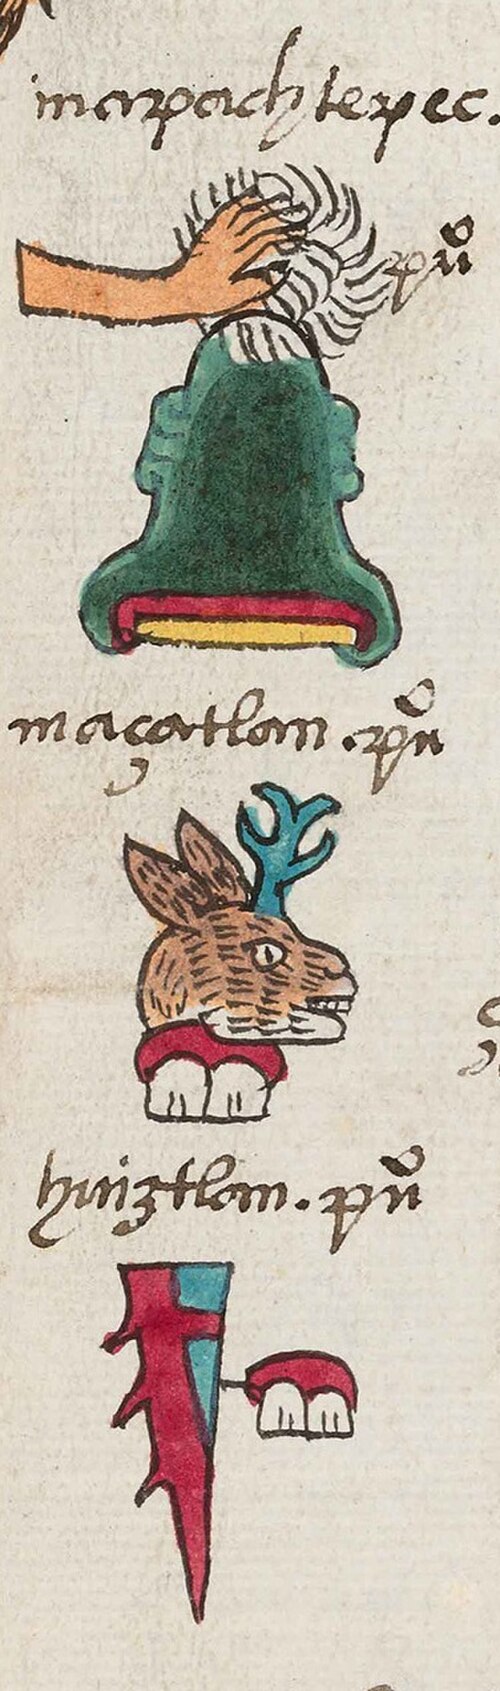 mapachtepec.
puº
maçatlan. puº
huiztlan. puº